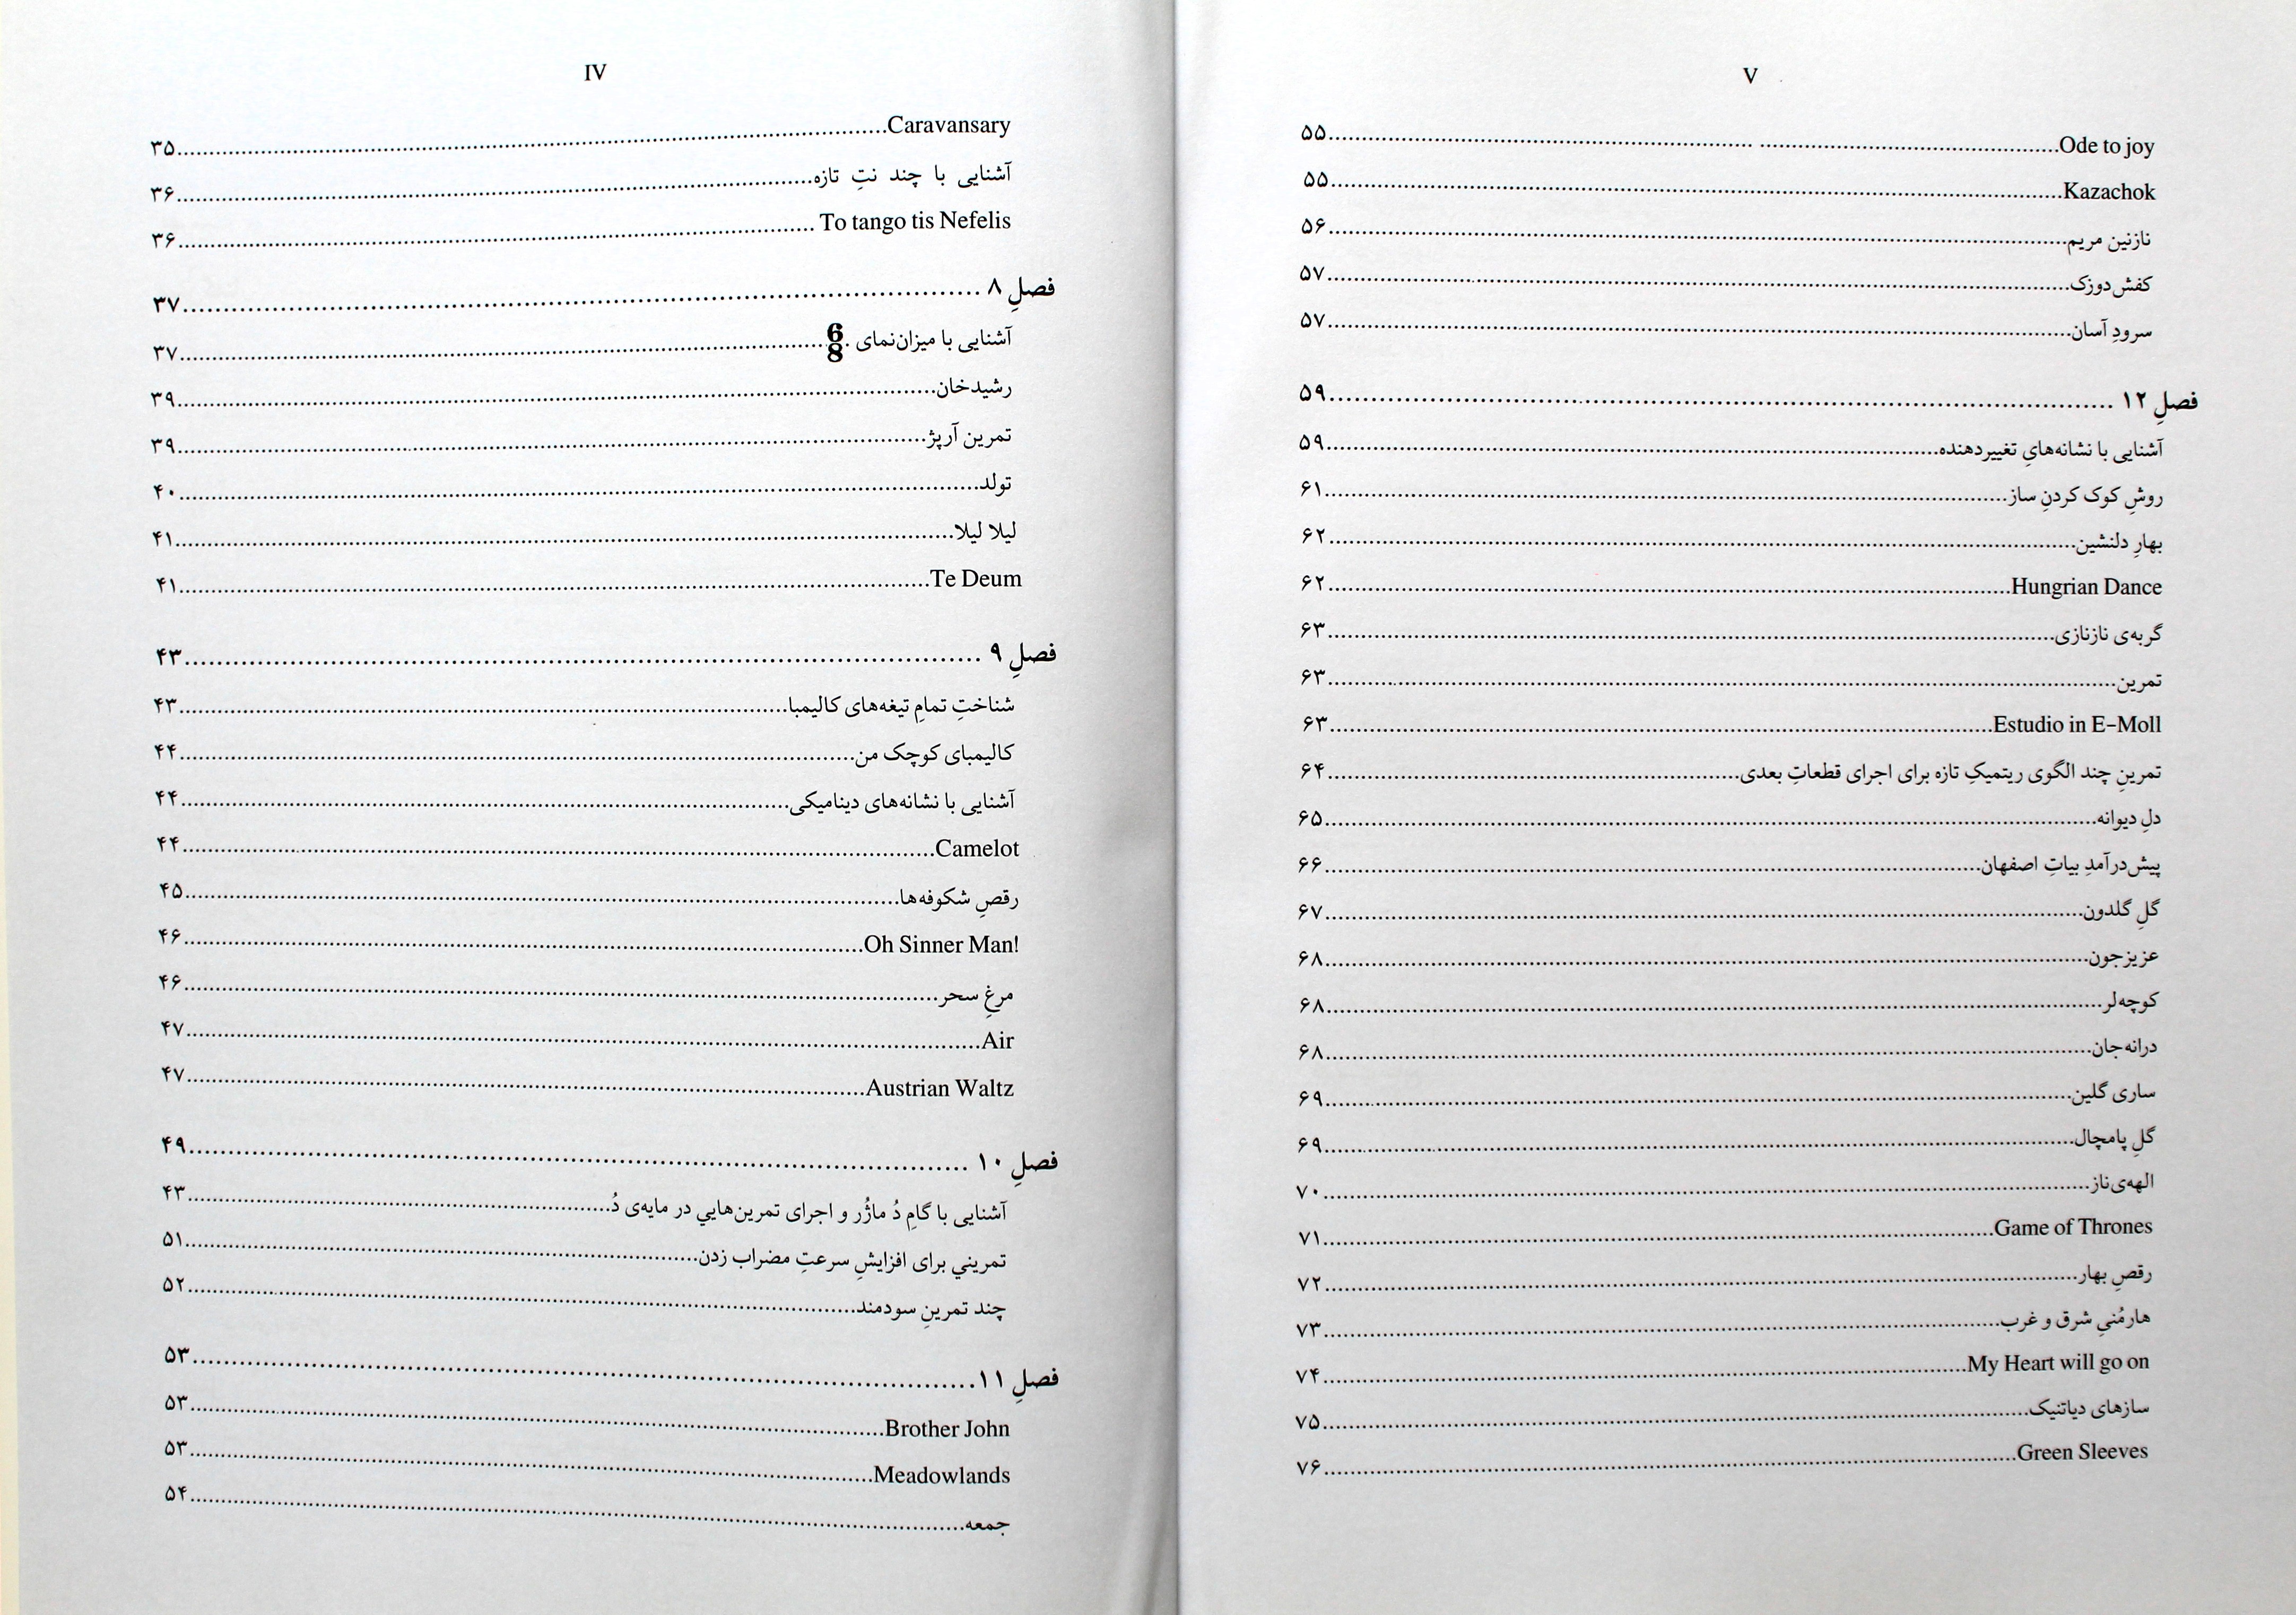 IV
Caravansary................................۳۵
آشنایی با چند نتِ تازه................................۳۶
To tango tis Nefelis................................۳۶
فصلِ ۸................................۳۷
آشنایی با میزان‌نمای 6/8................................۳۷
رشیدخان................................۳۹
تمرین آرپژ................................۳۹
تولد................................۴۰
لیلا لیلا................................۴۱
Te Deum................................۴۱
فصلِ ۹................................۴۳
شناختِ تمامِ تیغه‌های کالیمبا................................۴۳
کالیمبای کوچک من................................۴۴
آشنایی با نشانه‌های دینامیکی................................۴۴
Camelot................................۴۴
رقصِ شکوفه‌ها................................۴۵
Oh Sinner Man!................................۴۶
مرغِ سحر................................۴۶
Air................................۴۷
Austrian Waltz................................۴۷
فصلِ ۱۰................................۴۹
آشنایی با گامِ دُ ماژُر و اجرای تمرین‌هایي در مایه‌ی دُ................................۴۳
تمریني برای افزایشِ سرعتِ مضراب زدن................................۵۱
چند تمرینِ سودمند................................۵۲
فصلِ ۱۱................................۵۳
Brother John................................۵۳
Meadowlands................................۵۳
جمعه................................۵۴
V
Ode to joy................................۵۵
Kazachok................................۵۵
نازنین مریم................................۵۶
کفش‌دوزک................................۵۷
سرودِ آسان................................۵۷
فصلِ ۱۲................................۵۹
آشنایی با نشانه‌هایِ تغییردهنده................................۵۹
روشِ کوک کردنِ ساز................................۶۱
بهارِ دلنشین................................۶۲
Hungrian Dance................................۶۲
گربه‌ی نازنازی................................۶۳
تمرین................................۶۳
Estudio in E-Moll................................۶۳
تمرینِ چند الگوی ریتمیکِ تازه برای اجرای قطعاتِ بعدی................................۶۴
دلِ دیوانه................................۶۵
پیش‌درآمدِ بیاتِ اصفهان................................۶۶
گلِ گلدون................................۶۷
عزیزجون................................۶۸
کوچه‌لر................................۶۸
درانه‌جان................................۶۸
ساری گلین................................۶۹
گلِ پامچال................................۶۹
الهه‌ی‌ناز................................۷۰
Game of Thrones................................۷۱
رقصِ بهار................................۷۲
هارمُنیِ شرق و غرب................................۷۳
My Heart will go on................................۷۴
سازهای دیاتنیک................................۷۵
Green Sleeves................................۷۶